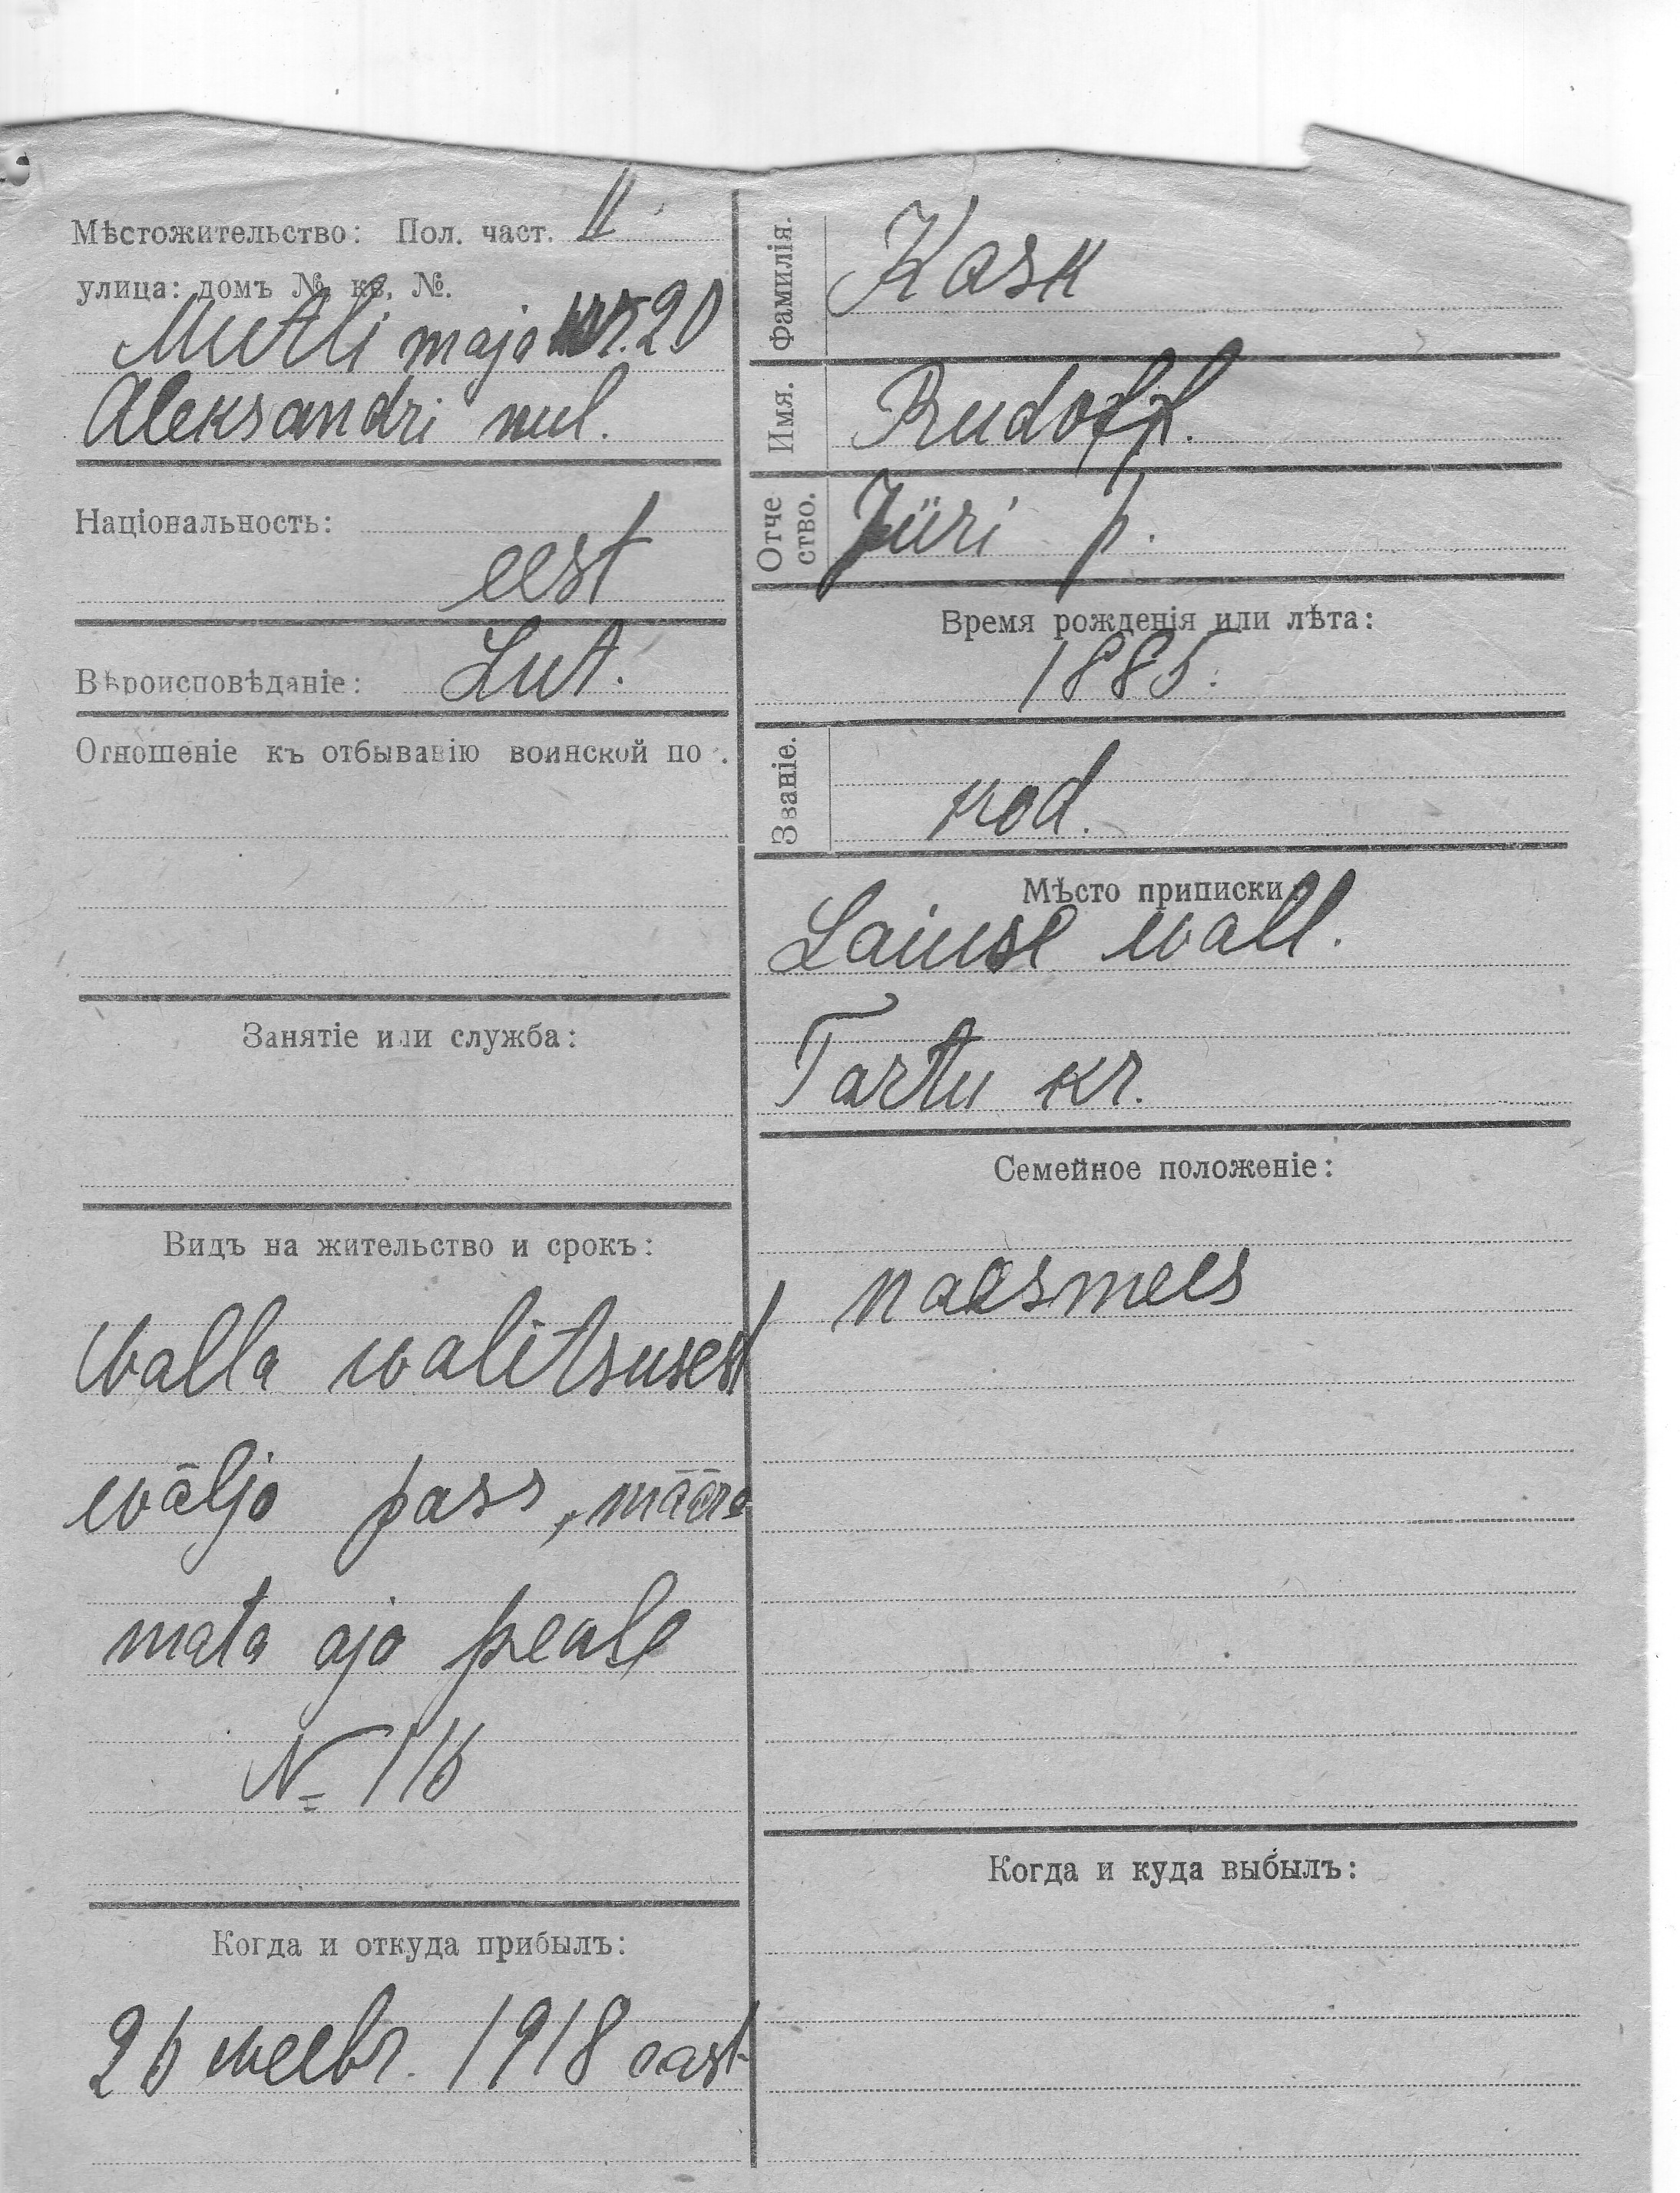 Мѣстожительство: Пол. част. II
улица: домъ № кв. №.
Mutli maja nr. 20
Aleksandri uul.
Національность:
eest
Вѣроисповѣданіе: Lut.
Отношеніе къ отбыванію воинской по .
Занятіе или служба:
Видъ на жительство и срокъ:
Walla walitsusest
wälja pass, määra
mata aja peale
№ 116
Когда и откуда прибылъ:
26 weebr. 1918 aast
Фамилія. Kask
Имя. Rudolf.
Отче
ство. Jüri p.
Время рожденія или лѣта:
1885.
Званіе. kod.
Мѣсто приписки
Laiuse wall.
Tartu kr.
Семейное положеніе:
naesmees
Когда и куда выбылъ: